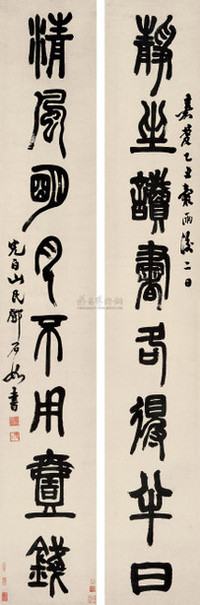 靜坐讀書各得半日
嘉慶乙丑穀雨後二日
清風明月不用壹錢
完白山民鄧石如書